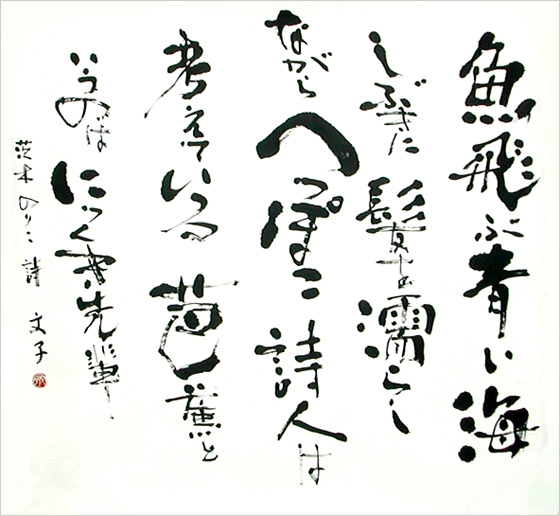 魚飛ぶ青い海
しぶきに髪を濡らし
ながらへっぽこ詩人は
考えている芭蕉と
いうのはにっくき先輩
茨木のりこ詩 文子